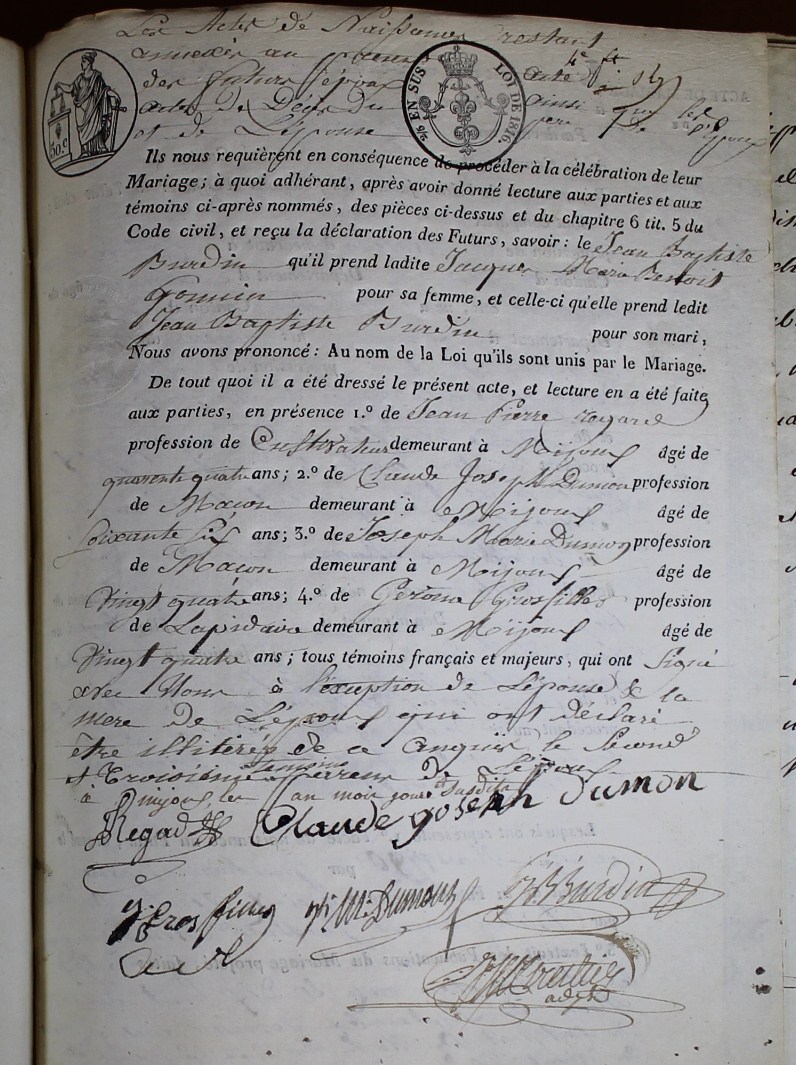 Les Actes de Naissances restant
annexés au
des futurs époux acte
actes de Décès du ainsi que les
et de L'épouse père de L'époux
50.C
2/5 EN SUS LOI DE 1816.
Ils nous requièrent en conséquence de procéder à la célébration de leur
Mariage; à quoi adhérant, après avoir donné lecture aux parties et aux
témoins ci-après nommés, des pièces ci-dessus et du chapitre 6 tit. 5 du
Code civil, et reçu la déclaration des Futurs, savoir: le Jean Baptiste
Burdin qu'il prend ladite Jacques Marie Benoit
pour sa femme, et celle-ci qu'elle prend ledit
Jean Baptiste Burdin pour son mari,
Nous avons prononcé: Au nom de la Loi qu'ils sont unis par le Mariage.
De tout quoi il a été dressé le présent acte, et lecture en a été faite
aux parties, en présence 1.º de Jean Pierre regard
profession de Cultivateur demeurant à Mijoux âgé de
quarente quatre ans; 2.º de Claude Joseph Dumon profession
de Macon demeurant à Mijoux âgé de
Soixante six ans; 3.º de Joseph Marie Dumon profession
de Macon demeurant à Mijoux âgé de
Vingt quatre ans; 4.º de Gerome Grosfilley profession
de Lapidaire demeurant à Mijoux âgé de
Vingt quatre ans; tous témoins français et majeurs, qui ont Signé
avec Nous à l'exception de L'épouse & la
mere de L'époux qui ont déclaré
être illitérés de ce enquis le Second
et Troisième temoins de L'époux
à Mijoux les an mois jour susdits
Regad Claude joseph Dumon
Grosfilley j. M. Dumon J B Burdin
adjt